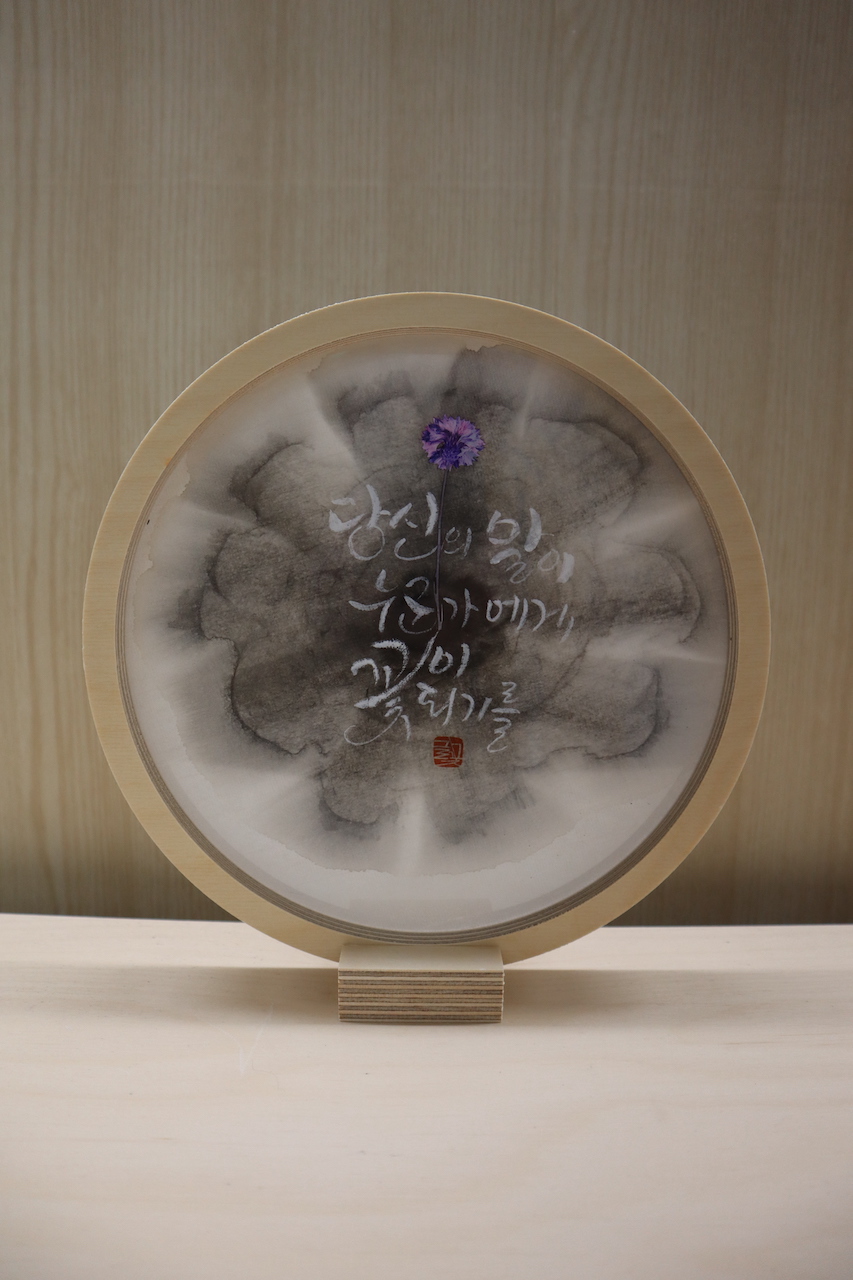 당신의 말이
누군가에게
꽃이
되기를